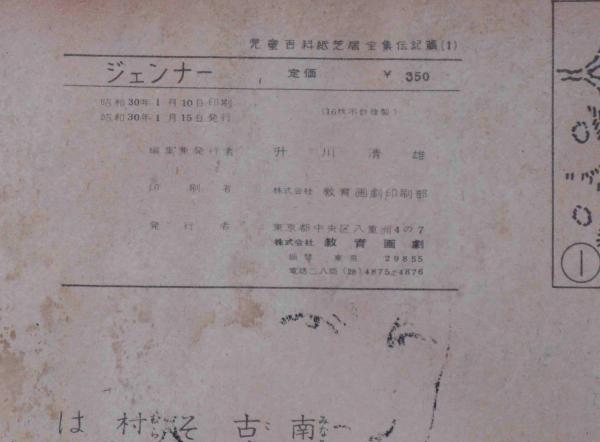 児童百科紙芝居全集伝記篇(1)
ジェンナー 定価 ¥ 350
昭和30年1月10日印刷
昭和30年1月15日発行
(16枚不許複製)
編集兼発行者 升川清雄
印刷者 株式会社 教育画劇印刷部
発行者 東京都中央区八重洲4の7
株式会社 教育画劇
振替 東京 29855
電話二八局 (28) 4875~4876
①
南
古
そ
村
は